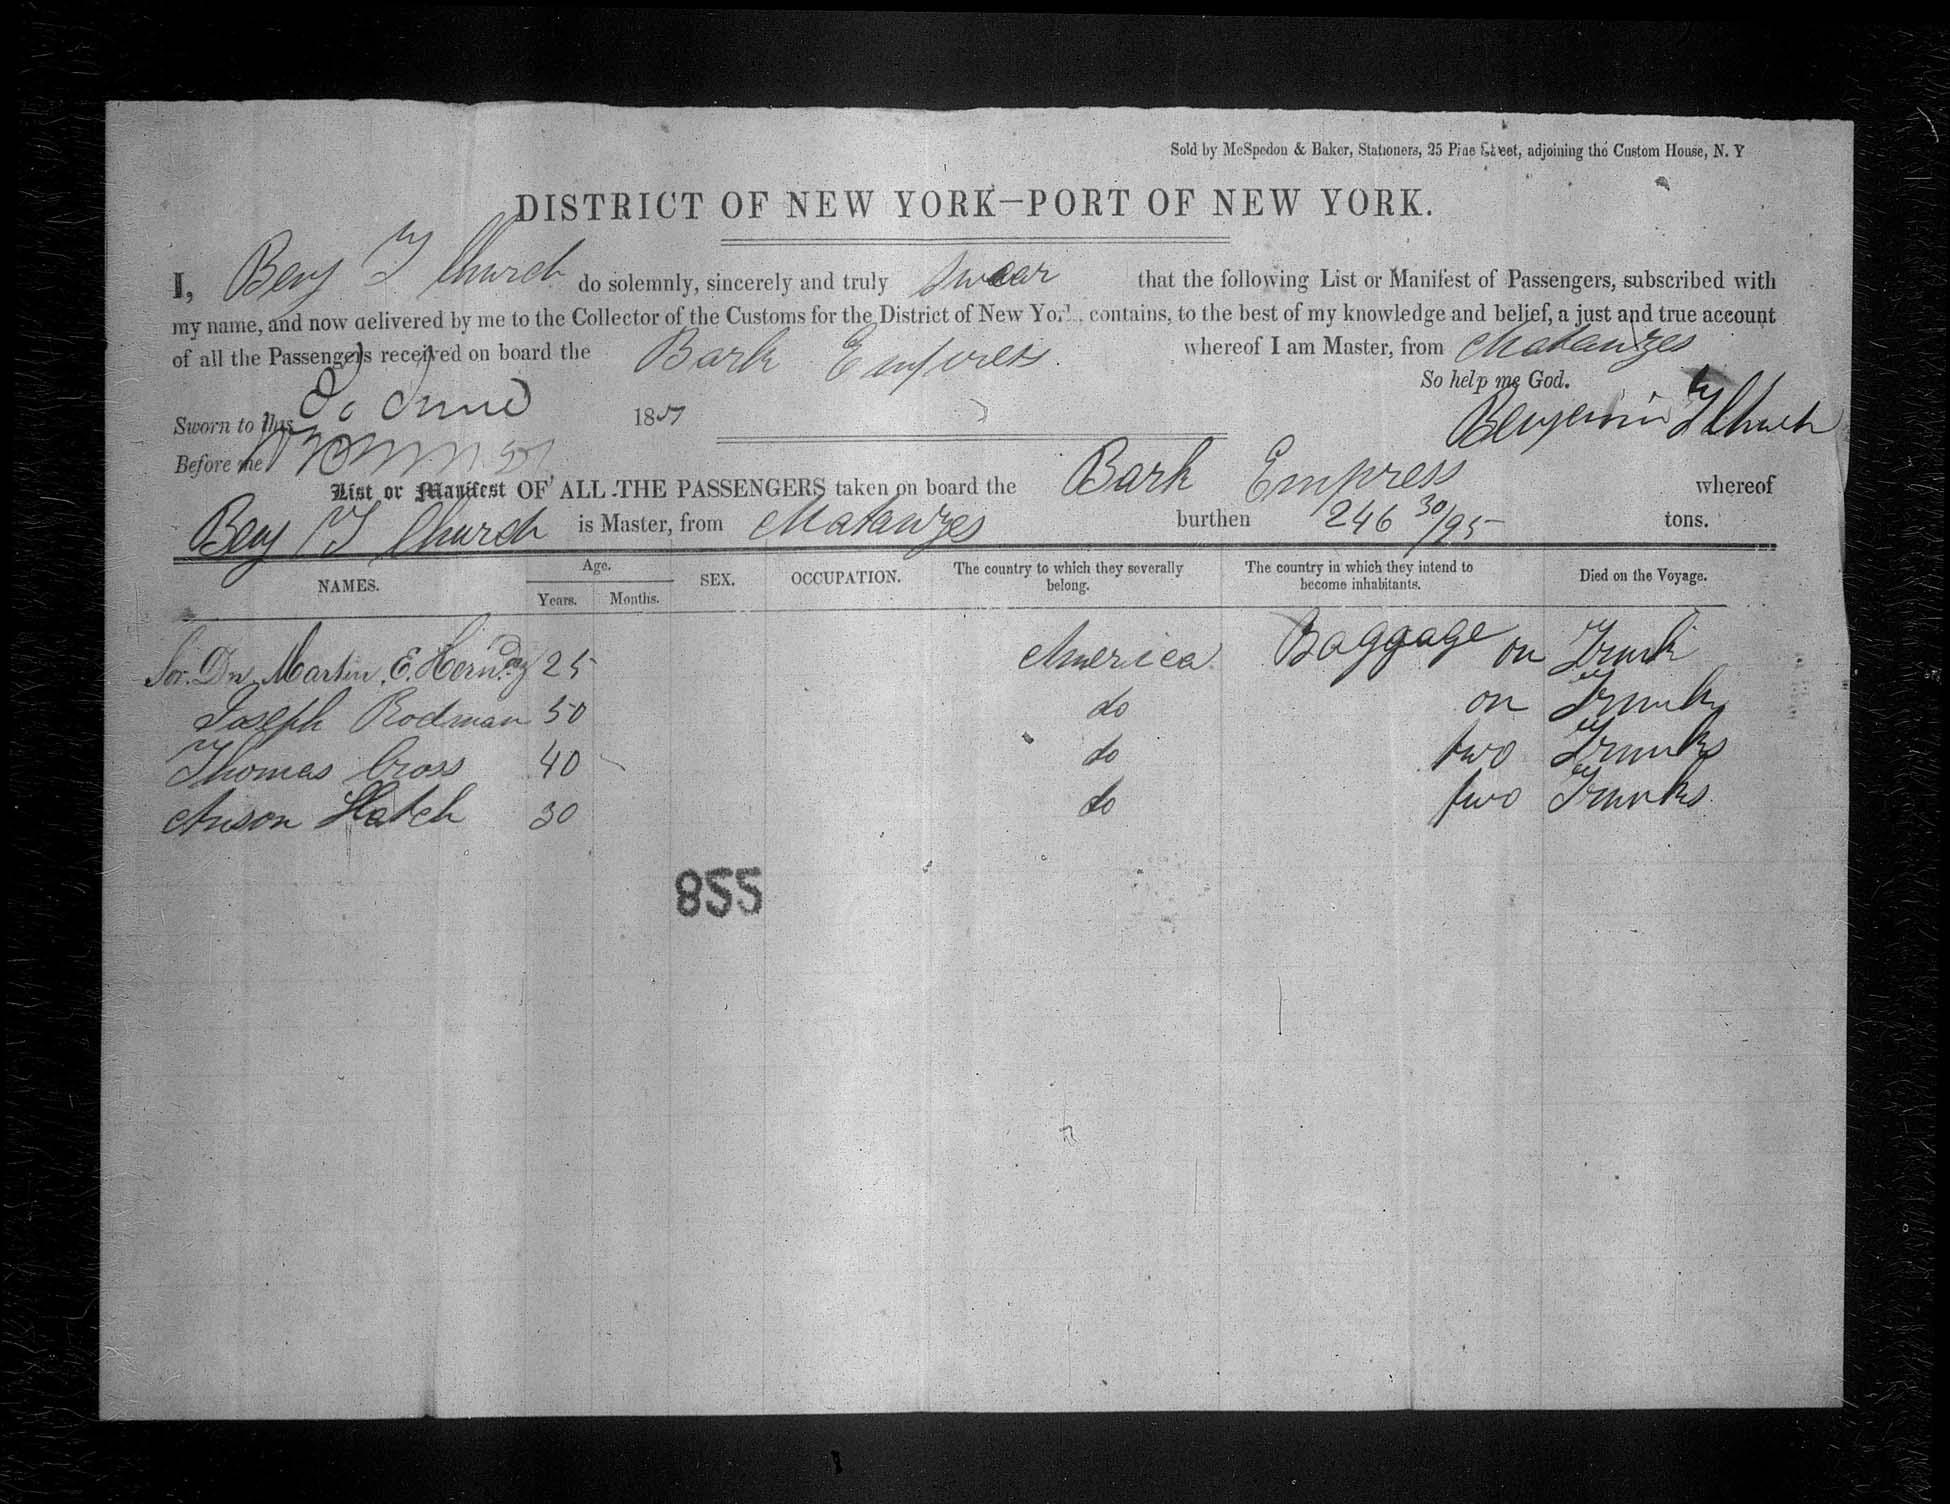 Sold by McSpedon & Baker, Stationers, 25 Pine Street, adjoining the Custom House, N. Y
DISTRICT OF NEW YORK—PORT OF NEW YORK.
I, Benj T Church do solemnly, sincerely and truly swear that the following List or Manifest of Passengers, subscribed with
my name, and now delivered by me to the Collector of the Customs for the District of New York, contains, to the best of my knowledge and belief, a just and true account
of all the Passengers received on board the Bark Empress whereof I am Master, from Matanzes
So help me God.
Sworn to this June 185 Benjamin T Church
Before me
List or Manifest OF ALL THE PASSENGERS taken on board the Bark Empress whereof
Benj T Church is Master, from Matanzes burthen 246 30/95 tons.
NAMES. Age. Years. Months. SEX. OCCUPATION. The country to which they severally belong. The country in which they intend to become inhabitants. Died on the Voyage.
Sor. Dn. Martin. E. Herndez 25 America Baggage on Trunk
Joseph Rodman 50 do on Trunk
Thomas Cross 40 do two Trunks
Anson Hatch 30 do two Trunks
855